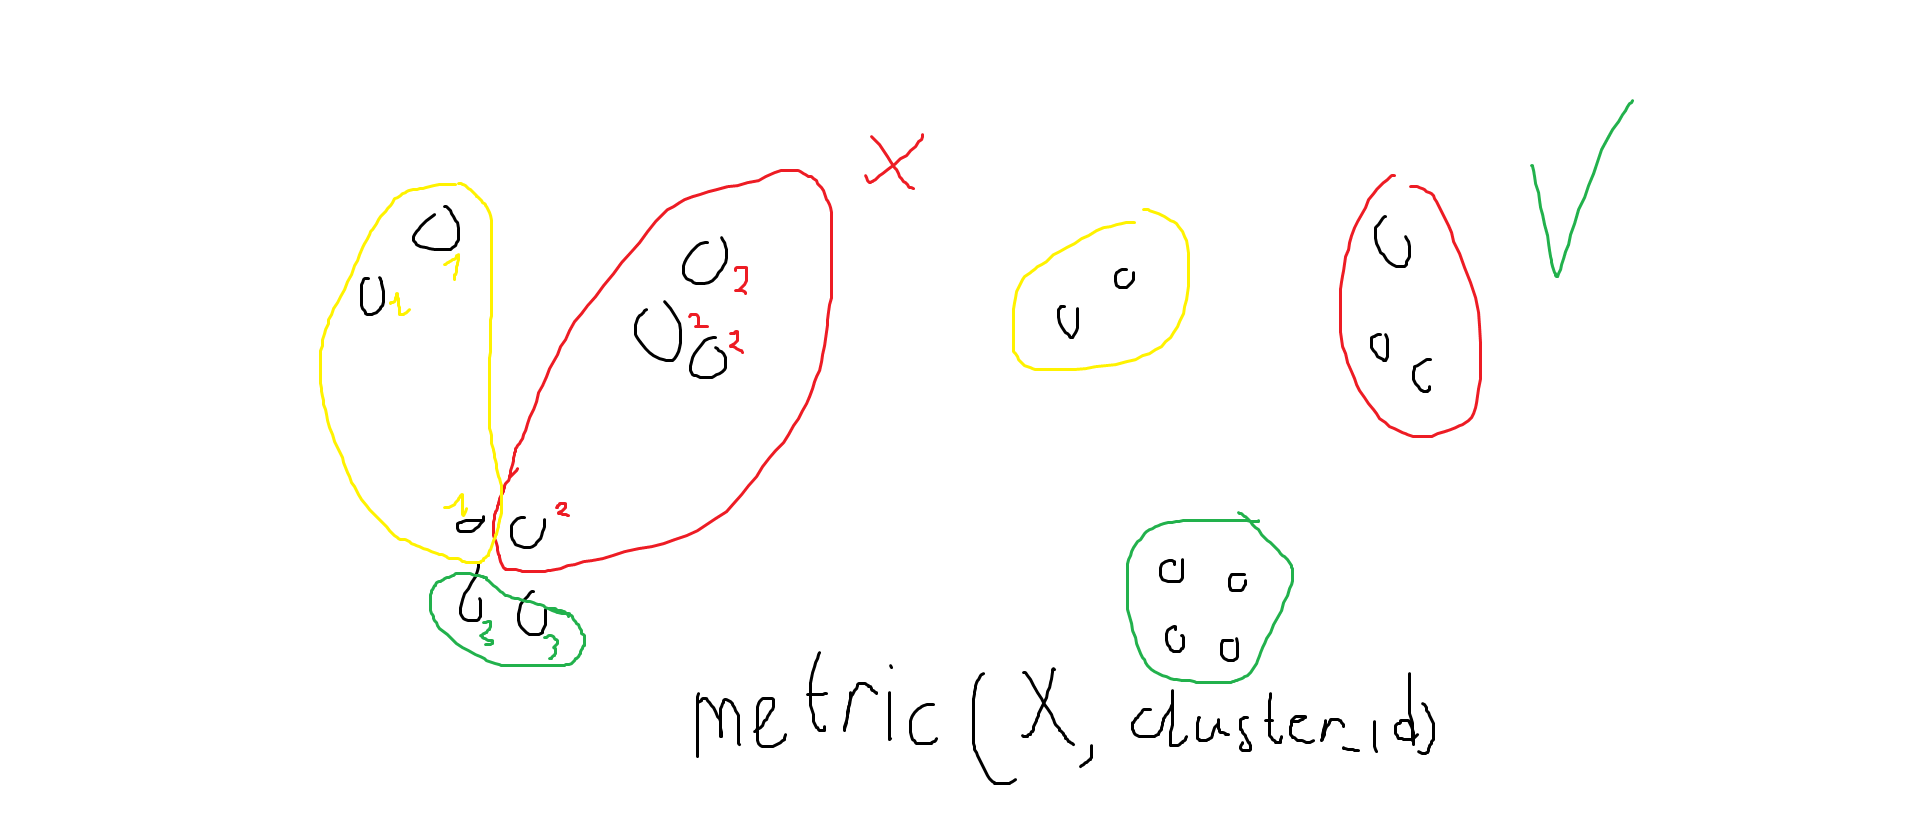 X
1
2
1
2
2
1
2
3
3
metric(X, cluster_id)